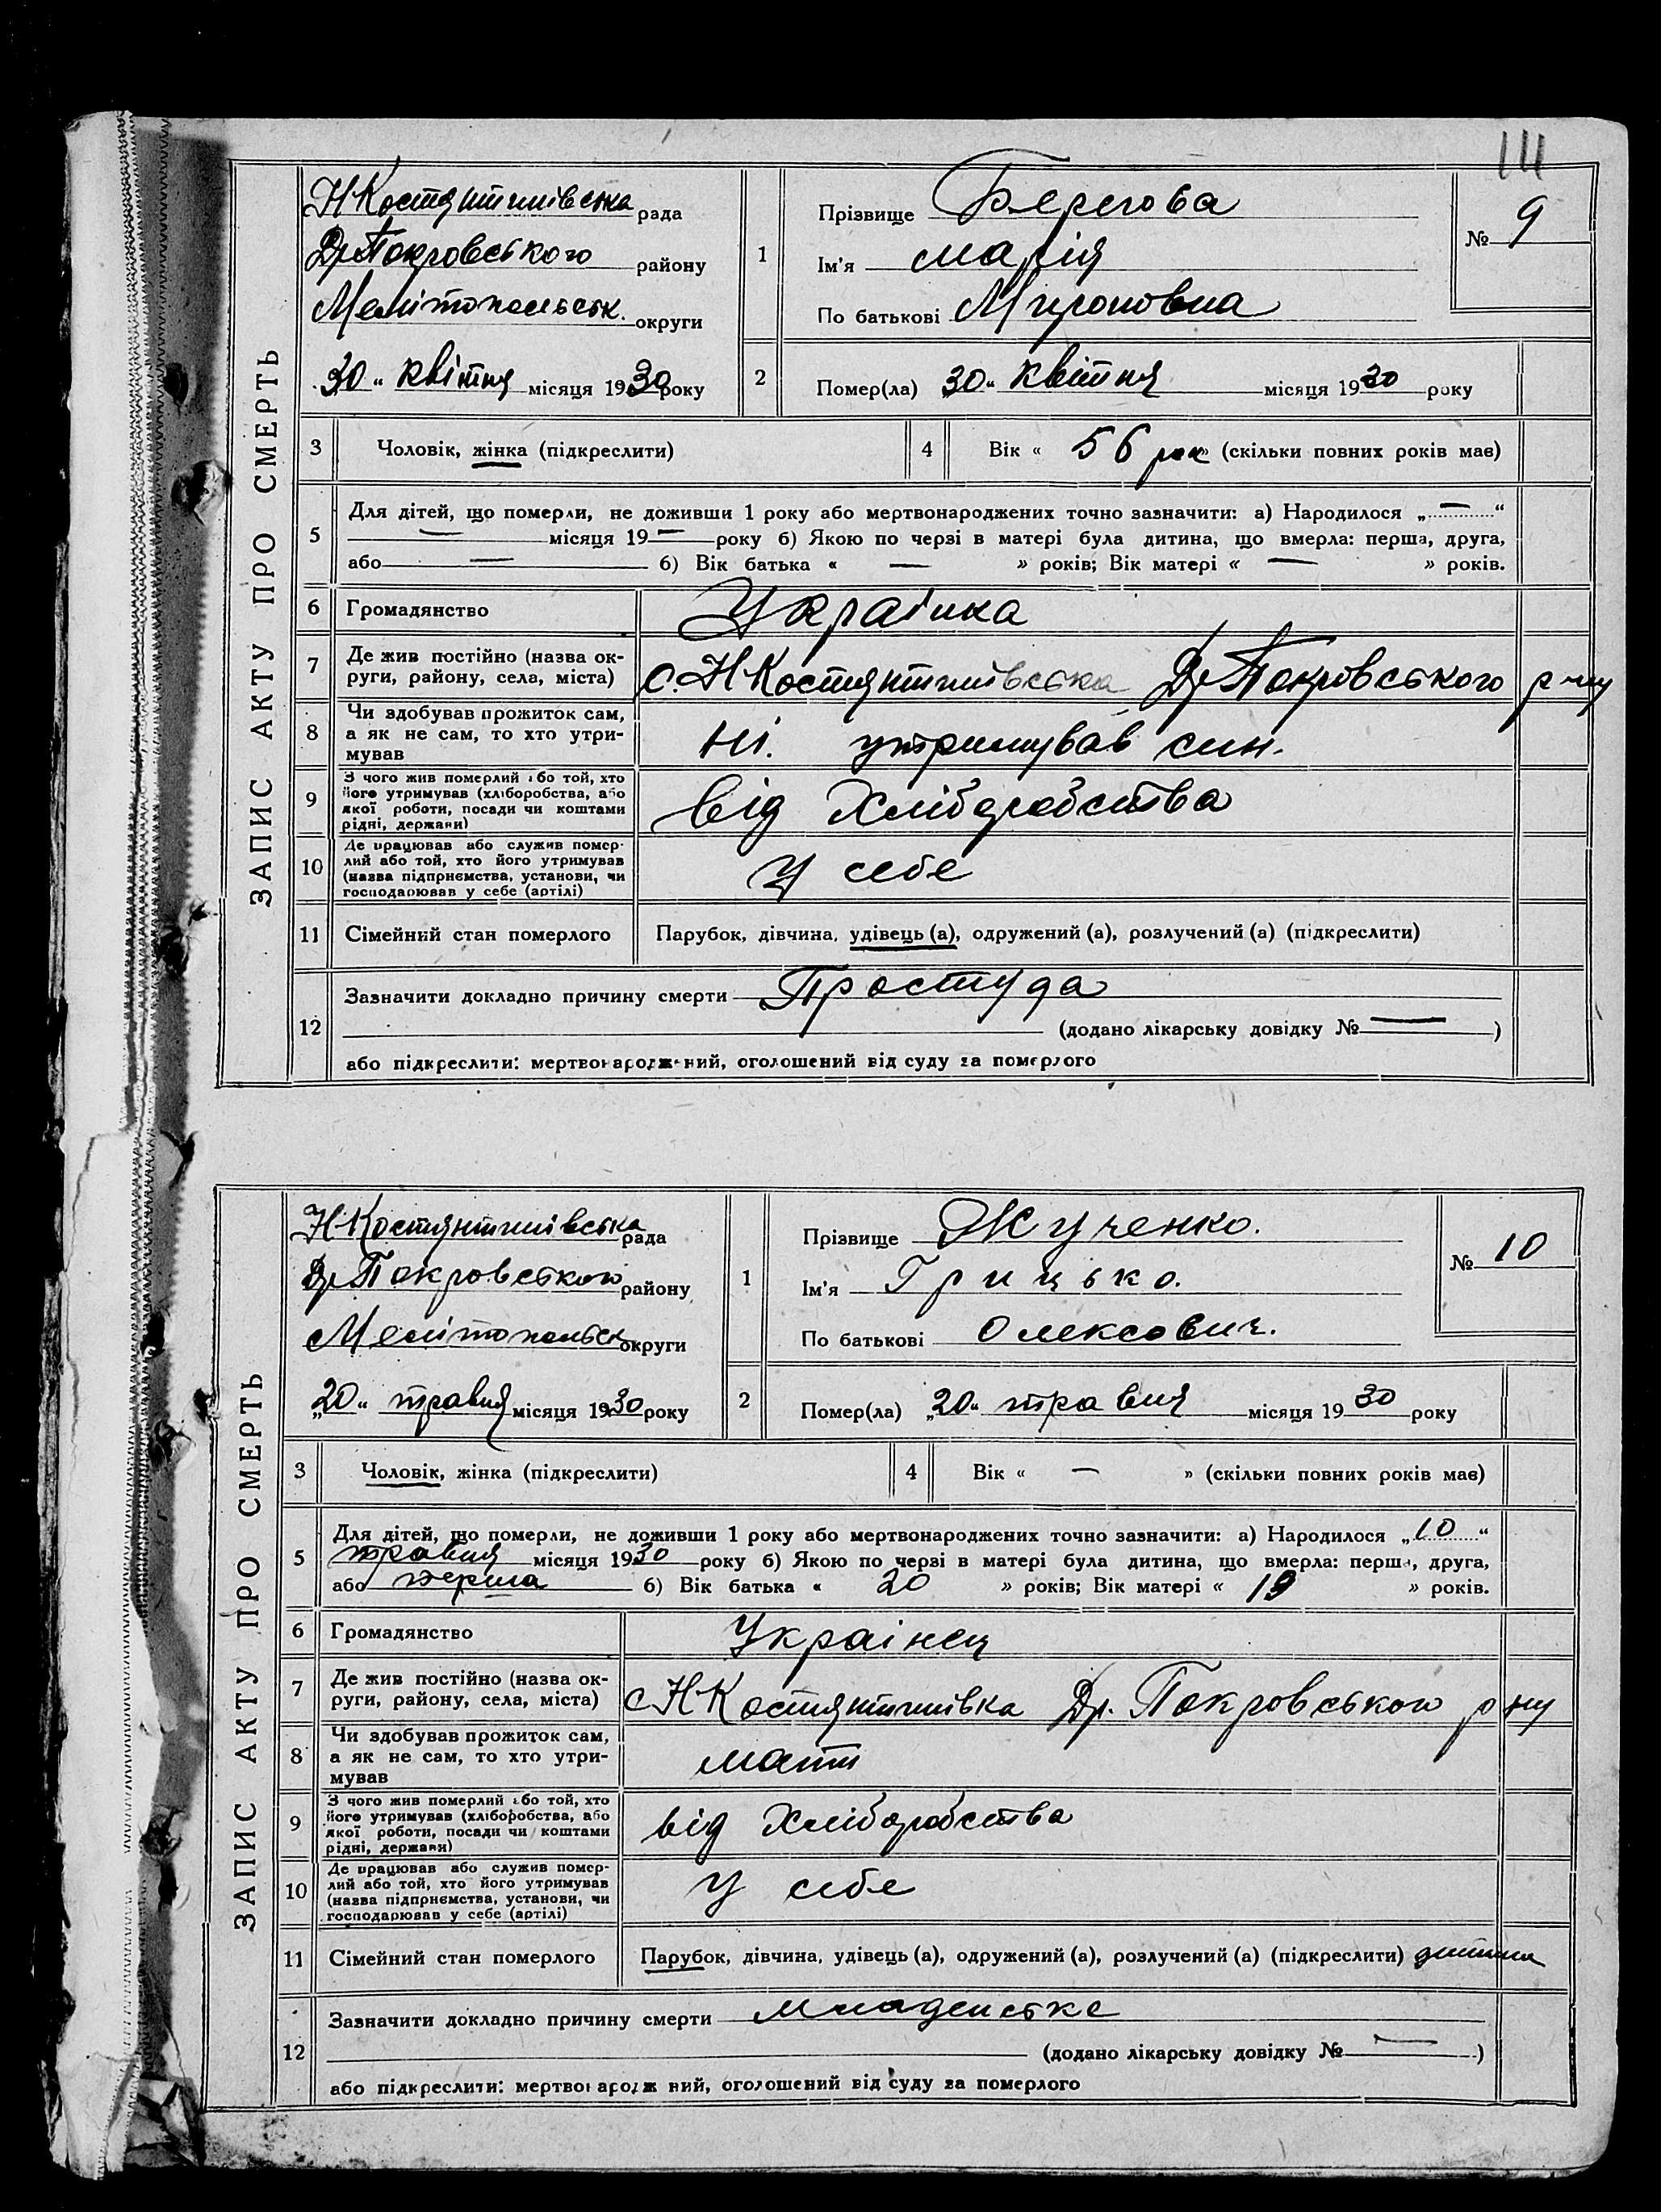 111
ЗАПИС АКТУ ПРО СМЕРТЬ
НКостянтинівська рада
Др Покровського району
Мелітопольськ. округи
„30“ квітня місяця 1930 року
1
Прізвище Берегова
Ім'я Марія
По батькові Мироновна
№ 9
2 Помер(ла) „30“ квітня місяця 1930 року
3 Чоловік, жінка (підкреслити)
4 Вік « 56 рок » (скільки повних років має)
5 Для дітей, що померли, не доживши 1 року або мертвонароджених точно зазначити: а) Народилося „ — “
— місяця 19 — року б) Якою по черзі в матері була дитина, що вмерла: перша, друга,
або — б) Вік батька « — » років; Вік матері « — » років.
6 Громадянство Українка
7 Де жив постійно (назва ок-
руги, району, села, міста) с. НКостянтинівська Др Покровського р-ну
8 Чи здобував прожиток сам,
а як не сам, то хто утри-
мував ні. утримував син.
9 З чого жив померлий або той, хто
його утримував (хліборобства, або
якої роботи, посади чи коштами
рідні, держави) від Хліборобства
10 Де працював або служив помер-
лий або той, хто його утримував
(назва підприємства, установи, чи
господарював у себе (артілі) У себе
11 Сімейний стан померлого Парубок, дівчина, удівець (а), одружений (а), розлучений (а) (підкреслити)
12 Зазначити докладно причину смерти Простуда
(додано лікарську довідку № — )
або підкреслити: мертвонароджений, оголошений від суду за померлого
ЗАПИС АКТУ ПРО СМЕРТЬ
НКостянтинівська рада
Др Покровського району
Мелітопольськ округи
„20“ травня місяця 1930 року
1
Прізвище Жученко.
Ім'я Грицько.
По батькові Олексович.
№ 10
2 Помер(ла) „20“ травня місяця 1930 року
3 Чоловік, жінка (підкреслити)
4 Вік « — » (скільки повних років має)
5 Для дітей, що померли, не доживши 1 року або мертвонароджених точно зазначити: а) Народилося „10“
травня місяця 1930 року б) Якою по черзі в матері була дитина, що вмерла: перша, друга,
або перша б) Вік батька « 20 » років; Вік матері « 19 » років.
6 Громадянство Українец
7 Де жив постійно (назва ок-
руги, району, села, міста) с НКостянтинівка Др. Покровського р ну
8 Чи здобував прожиток сам,
а як не сам, то хто утри-
мував мати
9 З чого жив померлий або той, хто
його утримував (хліборобства, або
якої роботи, посади чи коштами
рідні, держави) від Хліборобства
10 Де працював або служив помер-
лий або той, хто його утримував
(назва підприємства, установи, чи
господарював у себе (артілі) У себе
11 Сімейний стан померлого Парубок, дівчина, удівець (а), одружений (а), розлучений (а) (підкреслити) дитина
12 Зазначити докладно причину смерти младенське
(додано лікарську довідку № — )
або підкреслити: мертвонароджений, оголошений від суду за померлого